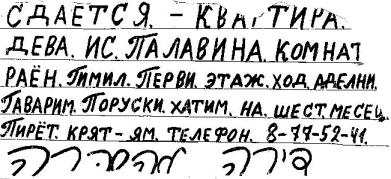 СДАЕТСЯ. - КВАРТИРА.
ДЕВА. ИС. ПАЛАВИНА. КОМНАТ
РАЁН. ГИМИЛ. ПЕРВИ. ЭТАЖ. ХОД. АДЕЛНИ.
ГАВАРИМ. ПОРУСКИ. ХАТИМ. НА. ШЕСТ. МЕСЕЦ.
ПИРЁТ. КРЯТ - ЯМ. ТЕЛЕФОН. 8-77-52-41.